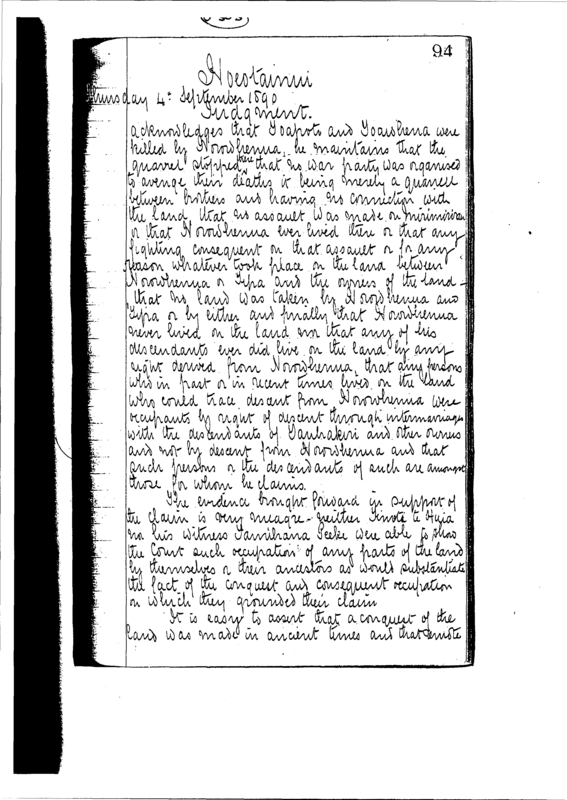 94
Hoeotainui
Thursday 4th September 1890
Judgment.
acknowledges that and were
killed by Horowhenua, he maintains that the
quarrel stopped there that no war party was organised
to avenge their deaths it being merely a quarrel
between brothers and having no connection with
the land, that no assault was made on
or that Horowhenua ever lived there or that any
fighting consequent on that assault or for any
reason whatever took place on the land between
Horowhenua or Tipa and the owners of the land –
that no land was taken by Horowhenua and
Tipa or by either and finally that Horowhenua
never lived on the land nor that any of his
descendants ever did live on the land by any
right derived from Horowhenua, that any persons
who in past or in recent times lived on the land
who could trace descent from Horowhenua were
occupants by right of descent through intermarriages
with the descendants of and other owners
and not by descent from Horowhenua and that
such persons or the descendants of such are amongst
those for whom he claims.
The evidence brought forward in support of
the claim is very meagre – neither te Huia
nor his witness Tamihana were able to show
the Court such occupation of any parts of the land
by themselves or their ancestors as would substantiate
the fact of the conquest and consequent occupation
on which they grounded their claim
It is easy to assert that a conquest of the
land was made in ancient times and that remote